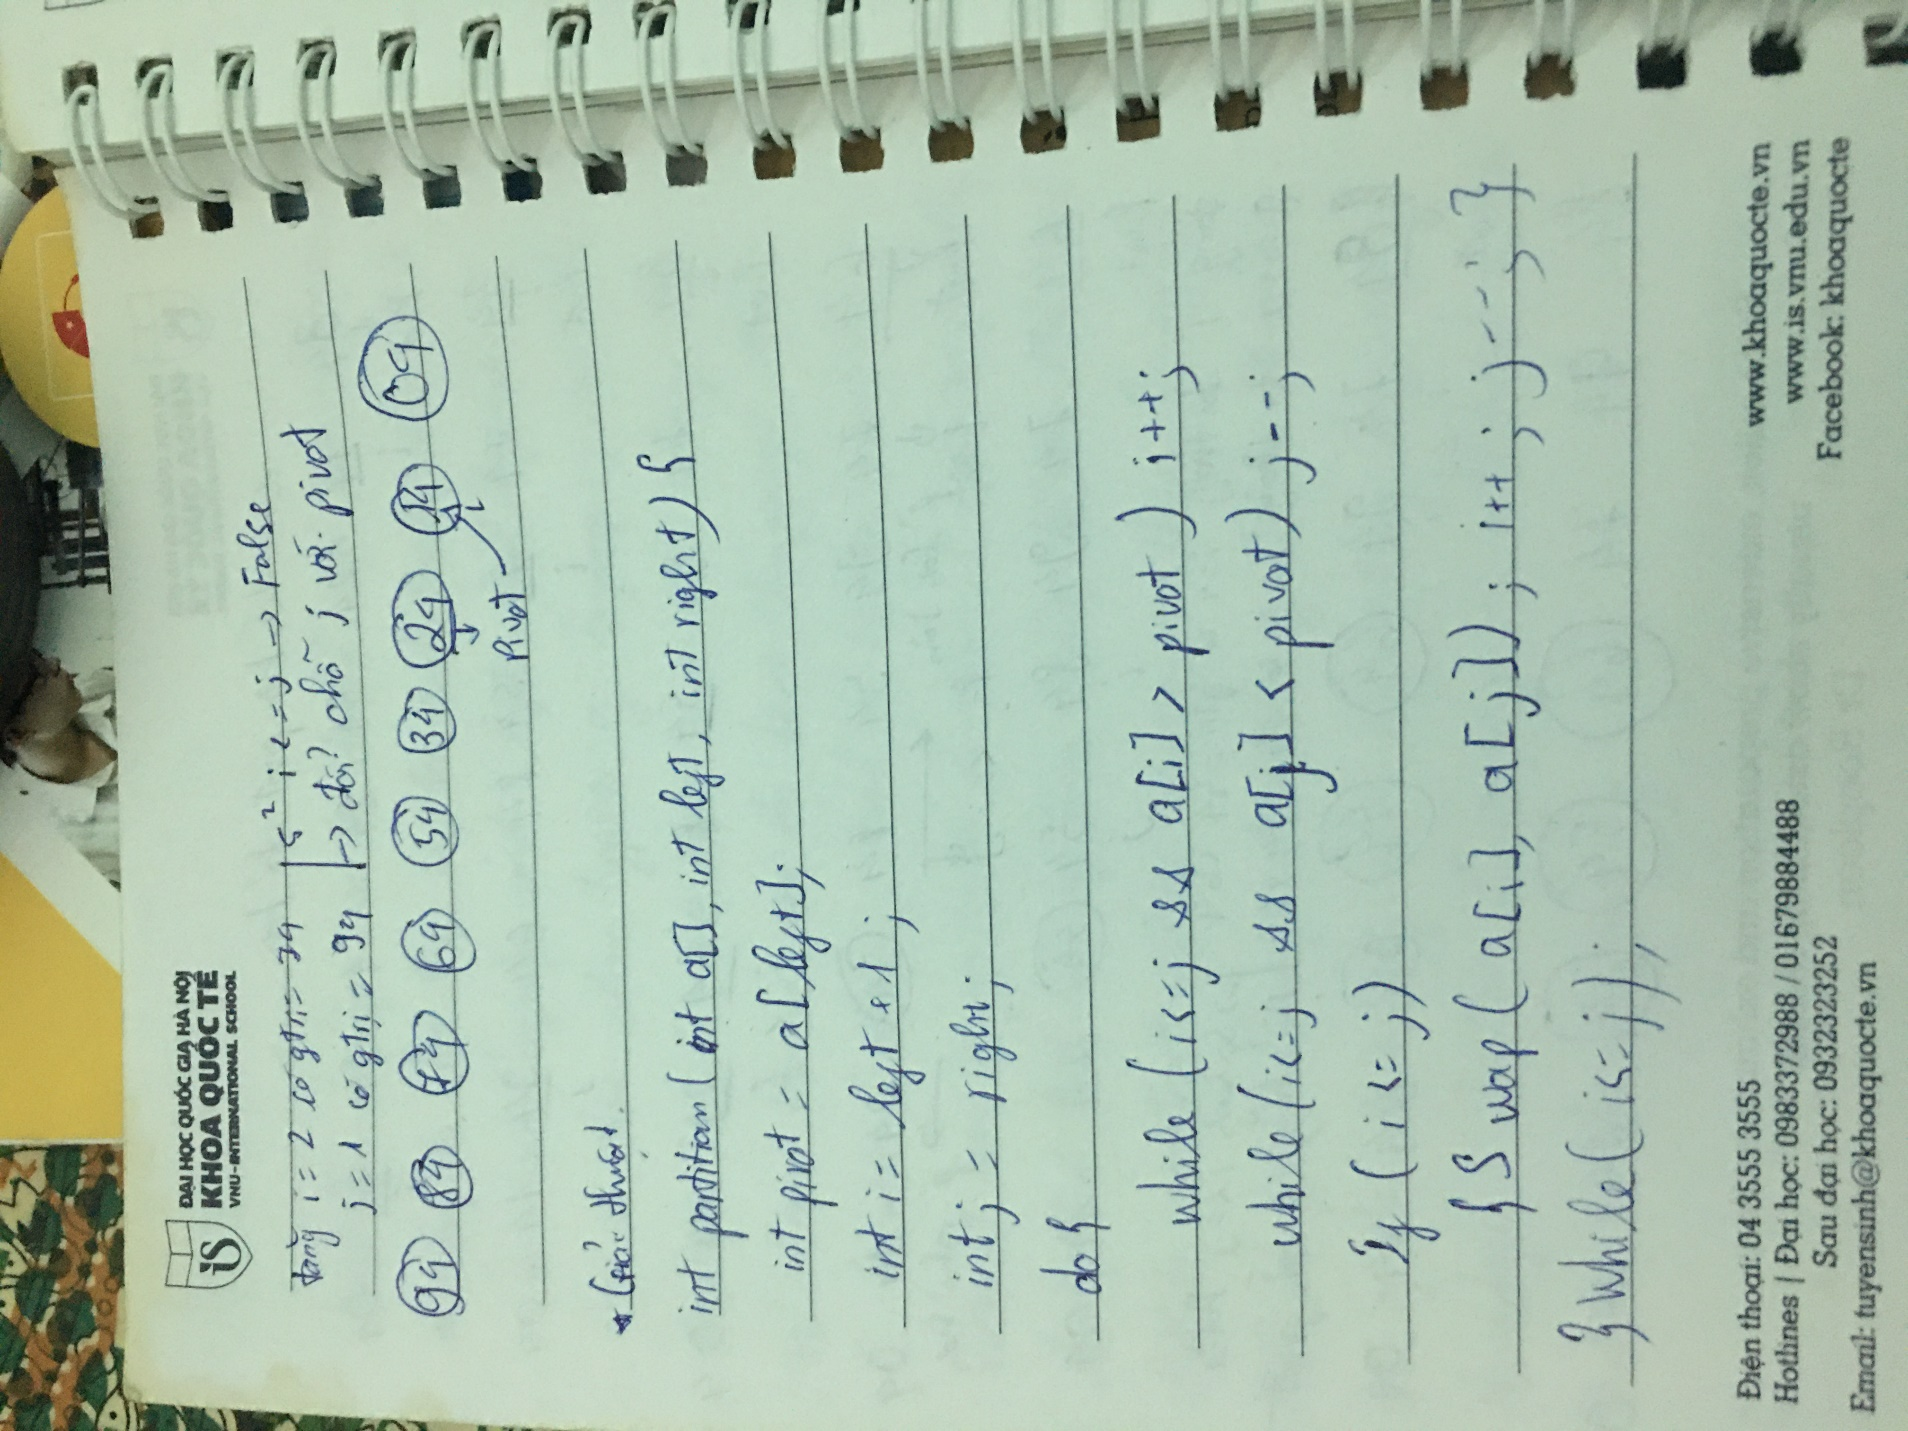 ĐẠI HỌC QUỐC GIA HÀ NỘI
KHOA QUỐC TẾ
VNU-INTERNATIONAL SCHOOL
iS
i = 2 có gtrị = 74 | i <= j -> False
j = 1 có gtrị = 94 | -> đổi chỗ j với pivot
94 84 74 64 54 34 24 14 04
pivot
* Giải thuật.
int partition (int a[], int left, int right) {
int pivot = a[left];
int i = left + 1;
int j = right;
do {
while (i <= j && a[i] > pivot) i++;
while (i <= j && a[j] < pivot) j--;
If (i <= j)
{ Swap (a[i], a[j]); i++; j--; }
} while (i <= j);
Điện thoại: 04 3555 3555
Hotlines | Đại học: 0983372988 / 01679884488
Sau đại học: 0932323252
Email: tuyensinh@khoaquocte.vn
www.khoaquocte.vn
www.is.vnu.edu.vn
Facebook: khoaquocte